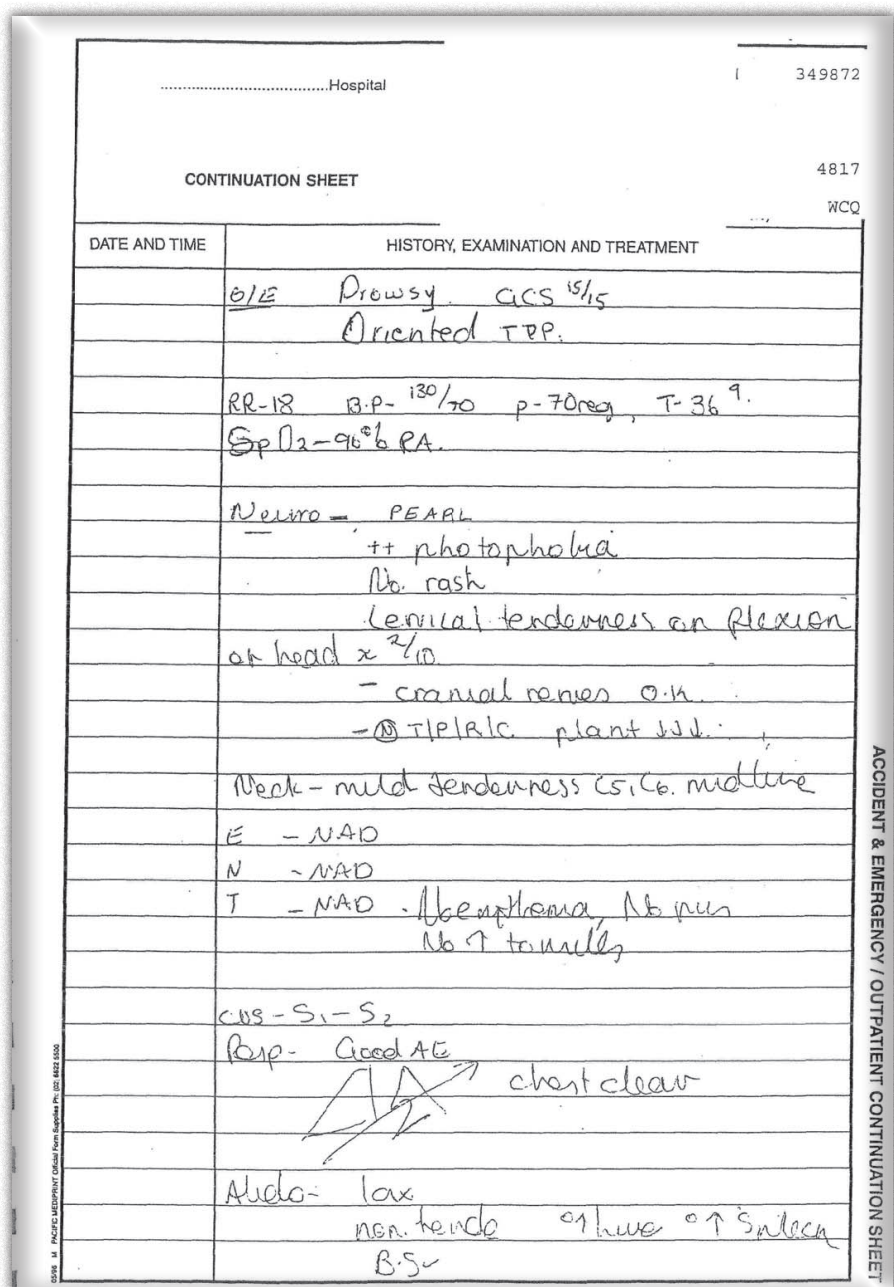 ....................................Hospital
349872
CONTINUATION SHEET
4817
WCQ
DATE AND TIME
HISTORY, EXAMINATION AND TREATMENT
O/E Drowsy. GCS 15/15
Oriented TPP.
RR-18 B.P- 130/70 p-70reg, T-36 9.
SpO2-96% RA.
Neuro - PEARL
++ photophobia
No. rash
Cervical tenderness on flexion
of head x 2/10
- cranial nerves O.K.
- Ⓝ T|P|R|C plant ↓↓↓.
Neck - mild tenderness C5, C6. midline
E - NAD
N - NAD
T - NAD. No erythema, No pus
No ↑ tonsils
CVS - S1 - S2
Resp - Good AE
chest clear
Abdo - lax
non. tende ° ↑ live ° ↑ Spleen
B.S✓
ACCIDENT & EMERGENCY / OUTPATIENT CONTINUATION SHEET
05/96 M PACIFIC MEDIPRINT Official Form Supplies Ph: (02) 6622 5500